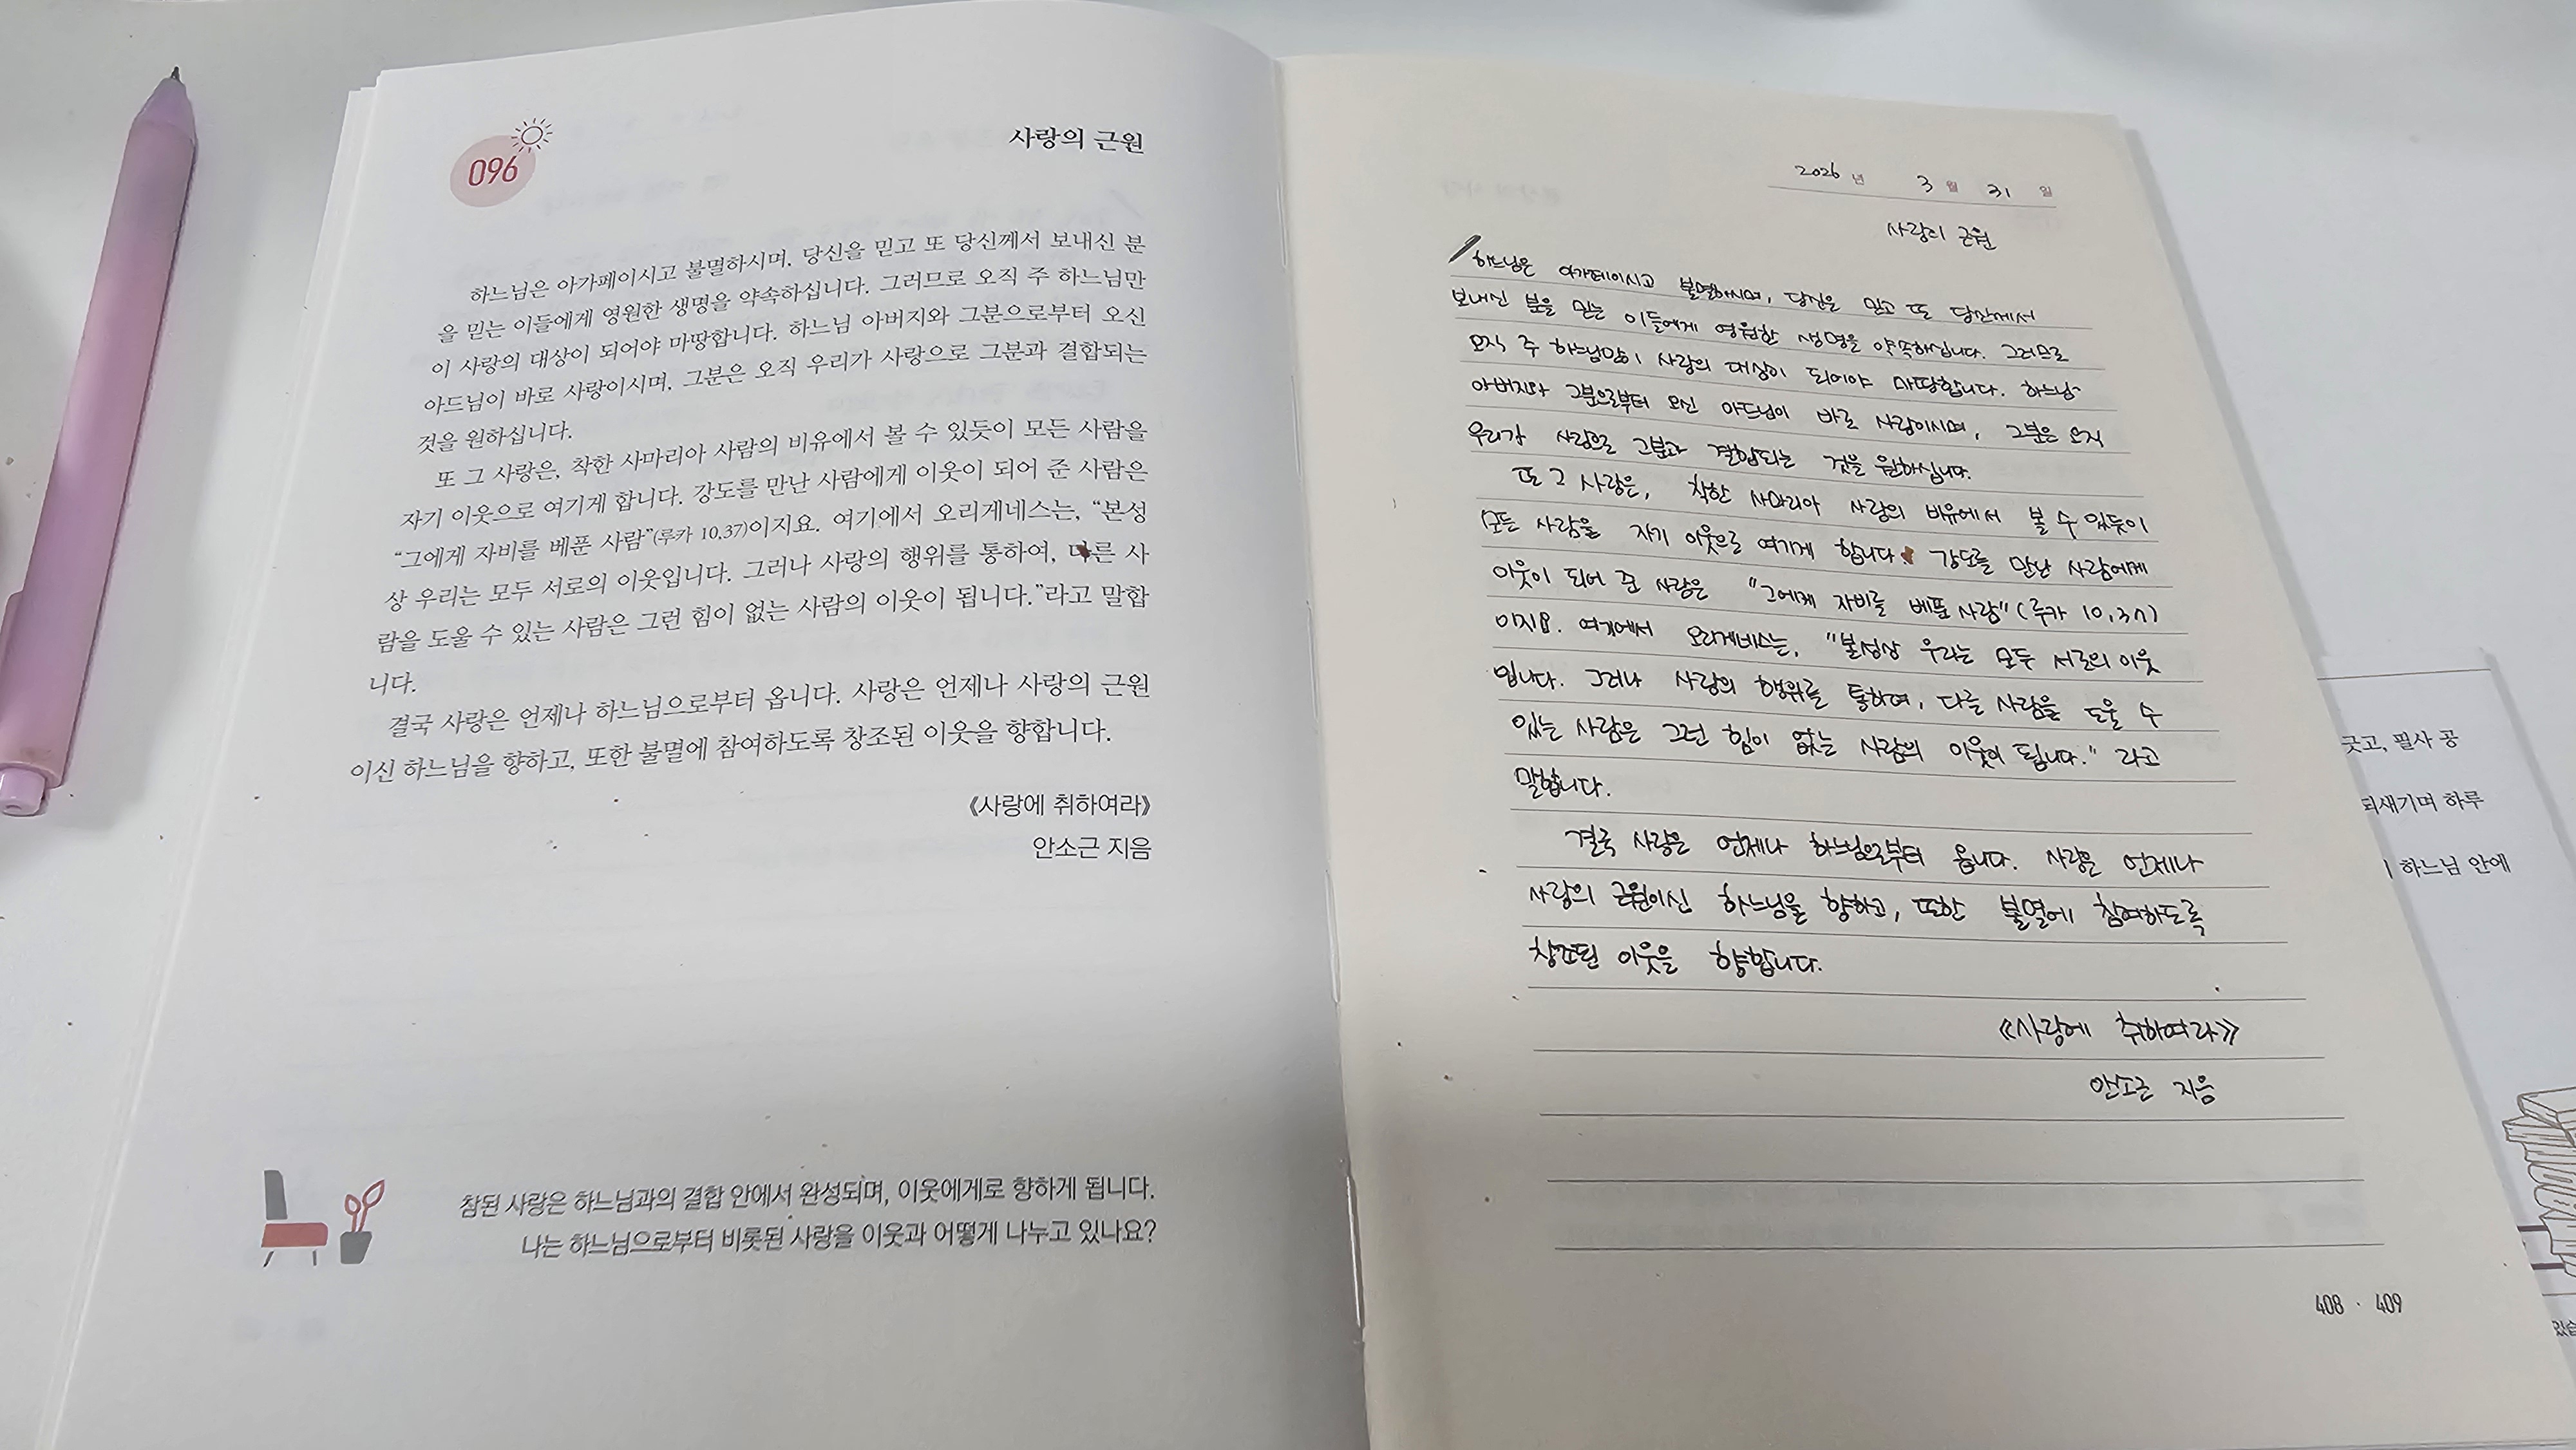 096
사랑의 근원
하느님은 아가페이시고 불멸하시며, 당신을 믿고 또 당신께서 보내신 분
을 믿는 이들에게 영원한 생명을 약속하십니다. 그러므로 오직 주 하느님만
이 사랑의 대상이 되어야 마땅합니다. 하느님 아버지와 그분으로부터 오신
아드님이 바로 사랑이시며, 그분은 오직 우리가 사랑으로 그분과 결합되는
것을 원하십니다.
또 그 사랑은, 착한 사마리아 사람의 비유에서 볼 수 있듯이 모든 사람을
자기 이웃으로 여기게 합니다. 강도를 만난 사람에게 이웃이 되어 준 사람은
“그에게 자비를 베푼 사람”(루카 10,37)이지요. 여기에서 오리게네스는, “본성
상 우리는 모두 서로의 이웃입니다. 그러나 사랑의 행위를 통하여, 다른 사
람을 도울 수 있는 사람은 그런 힘이 없는 사람의 이웃이 됩니다.”라고 말합
니다.
결국 사랑은 언제나 하느님으로부터 옵니다. 사랑은 언제나 사랑의 근원
이신 하느님을 향하고, 또한 불멸에 참여하도록 창조된 이웃을 향합니다.
《사랑에 취하여라》
안소근 지음
참된 사랑은 하느님과의 결합 안에서 완성되며, 이웃에게로 향하게 됩니다.
나는 하느님으로부터 비롯된 사랑을 이웃과 어떻게 나누고 있나요?
2026 년 3 월 31 일
사랑의 근원
하느님은 아가페이시고 불멸하시며, 당신을 믿고 또 당신께서
보내신 분을 믿는 이들에게 영원한 생명을 약속하십니다. 그러므로
오직 주 하느님만이 사랑의 대상이 되어야 마땅합니다. 하느님
아버지와 그분으로부터 오신 아드님이 바로 사랑이시며, 그분은 오직
우리가 사랑으로 그분과 결합되는 것을 원하십니다.
또 그 사랑은, 착한 사마리아 사람의 비유에서 볼 수 있듯이
모든 사람을 자기 이웃으로 여기게 합니다. 강도를 만난 사람에게
이웃이 되어 준 사람은 "그에게 자비를 베푼 사람" (루카 10,37)
이지요. 여기에서 오리게네스는, "본성상 우리는 모두 서로의 이웃
입니다. 그러나 사랑의 행위를 통하여, 다른 사람을 도울 수
있는 사람은 그런 힘이 없는 사람의 이웃이 됩니다." 라고
말합니다.
결국 사랑은 언제나 하느님으로부터 옵니다. 사랑은 언제나
사랑의 근원이신 하느님을 향하고, 또한 불멸에 참여하도록
창조된 이웃을 향합니다.
《사랑에 취하여라》
안소근 지음
408 · 409
긋고, 필사 공
되새기며 하루
하느님 안에